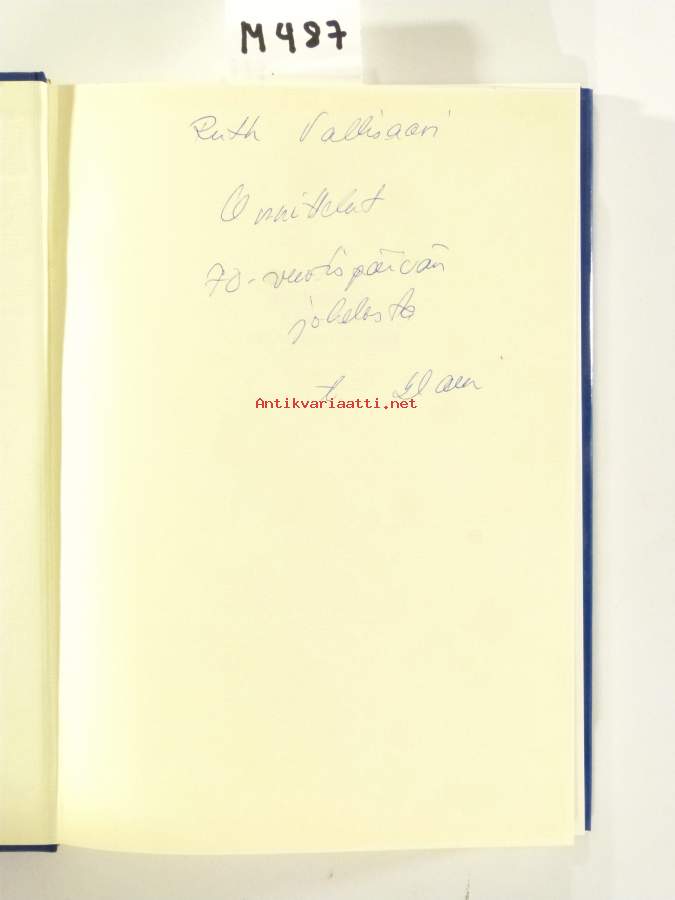 M487
Ruth Vallisaari
Onnittelut
70-vuotispäivän
johdosta
Antikvariaatti.net